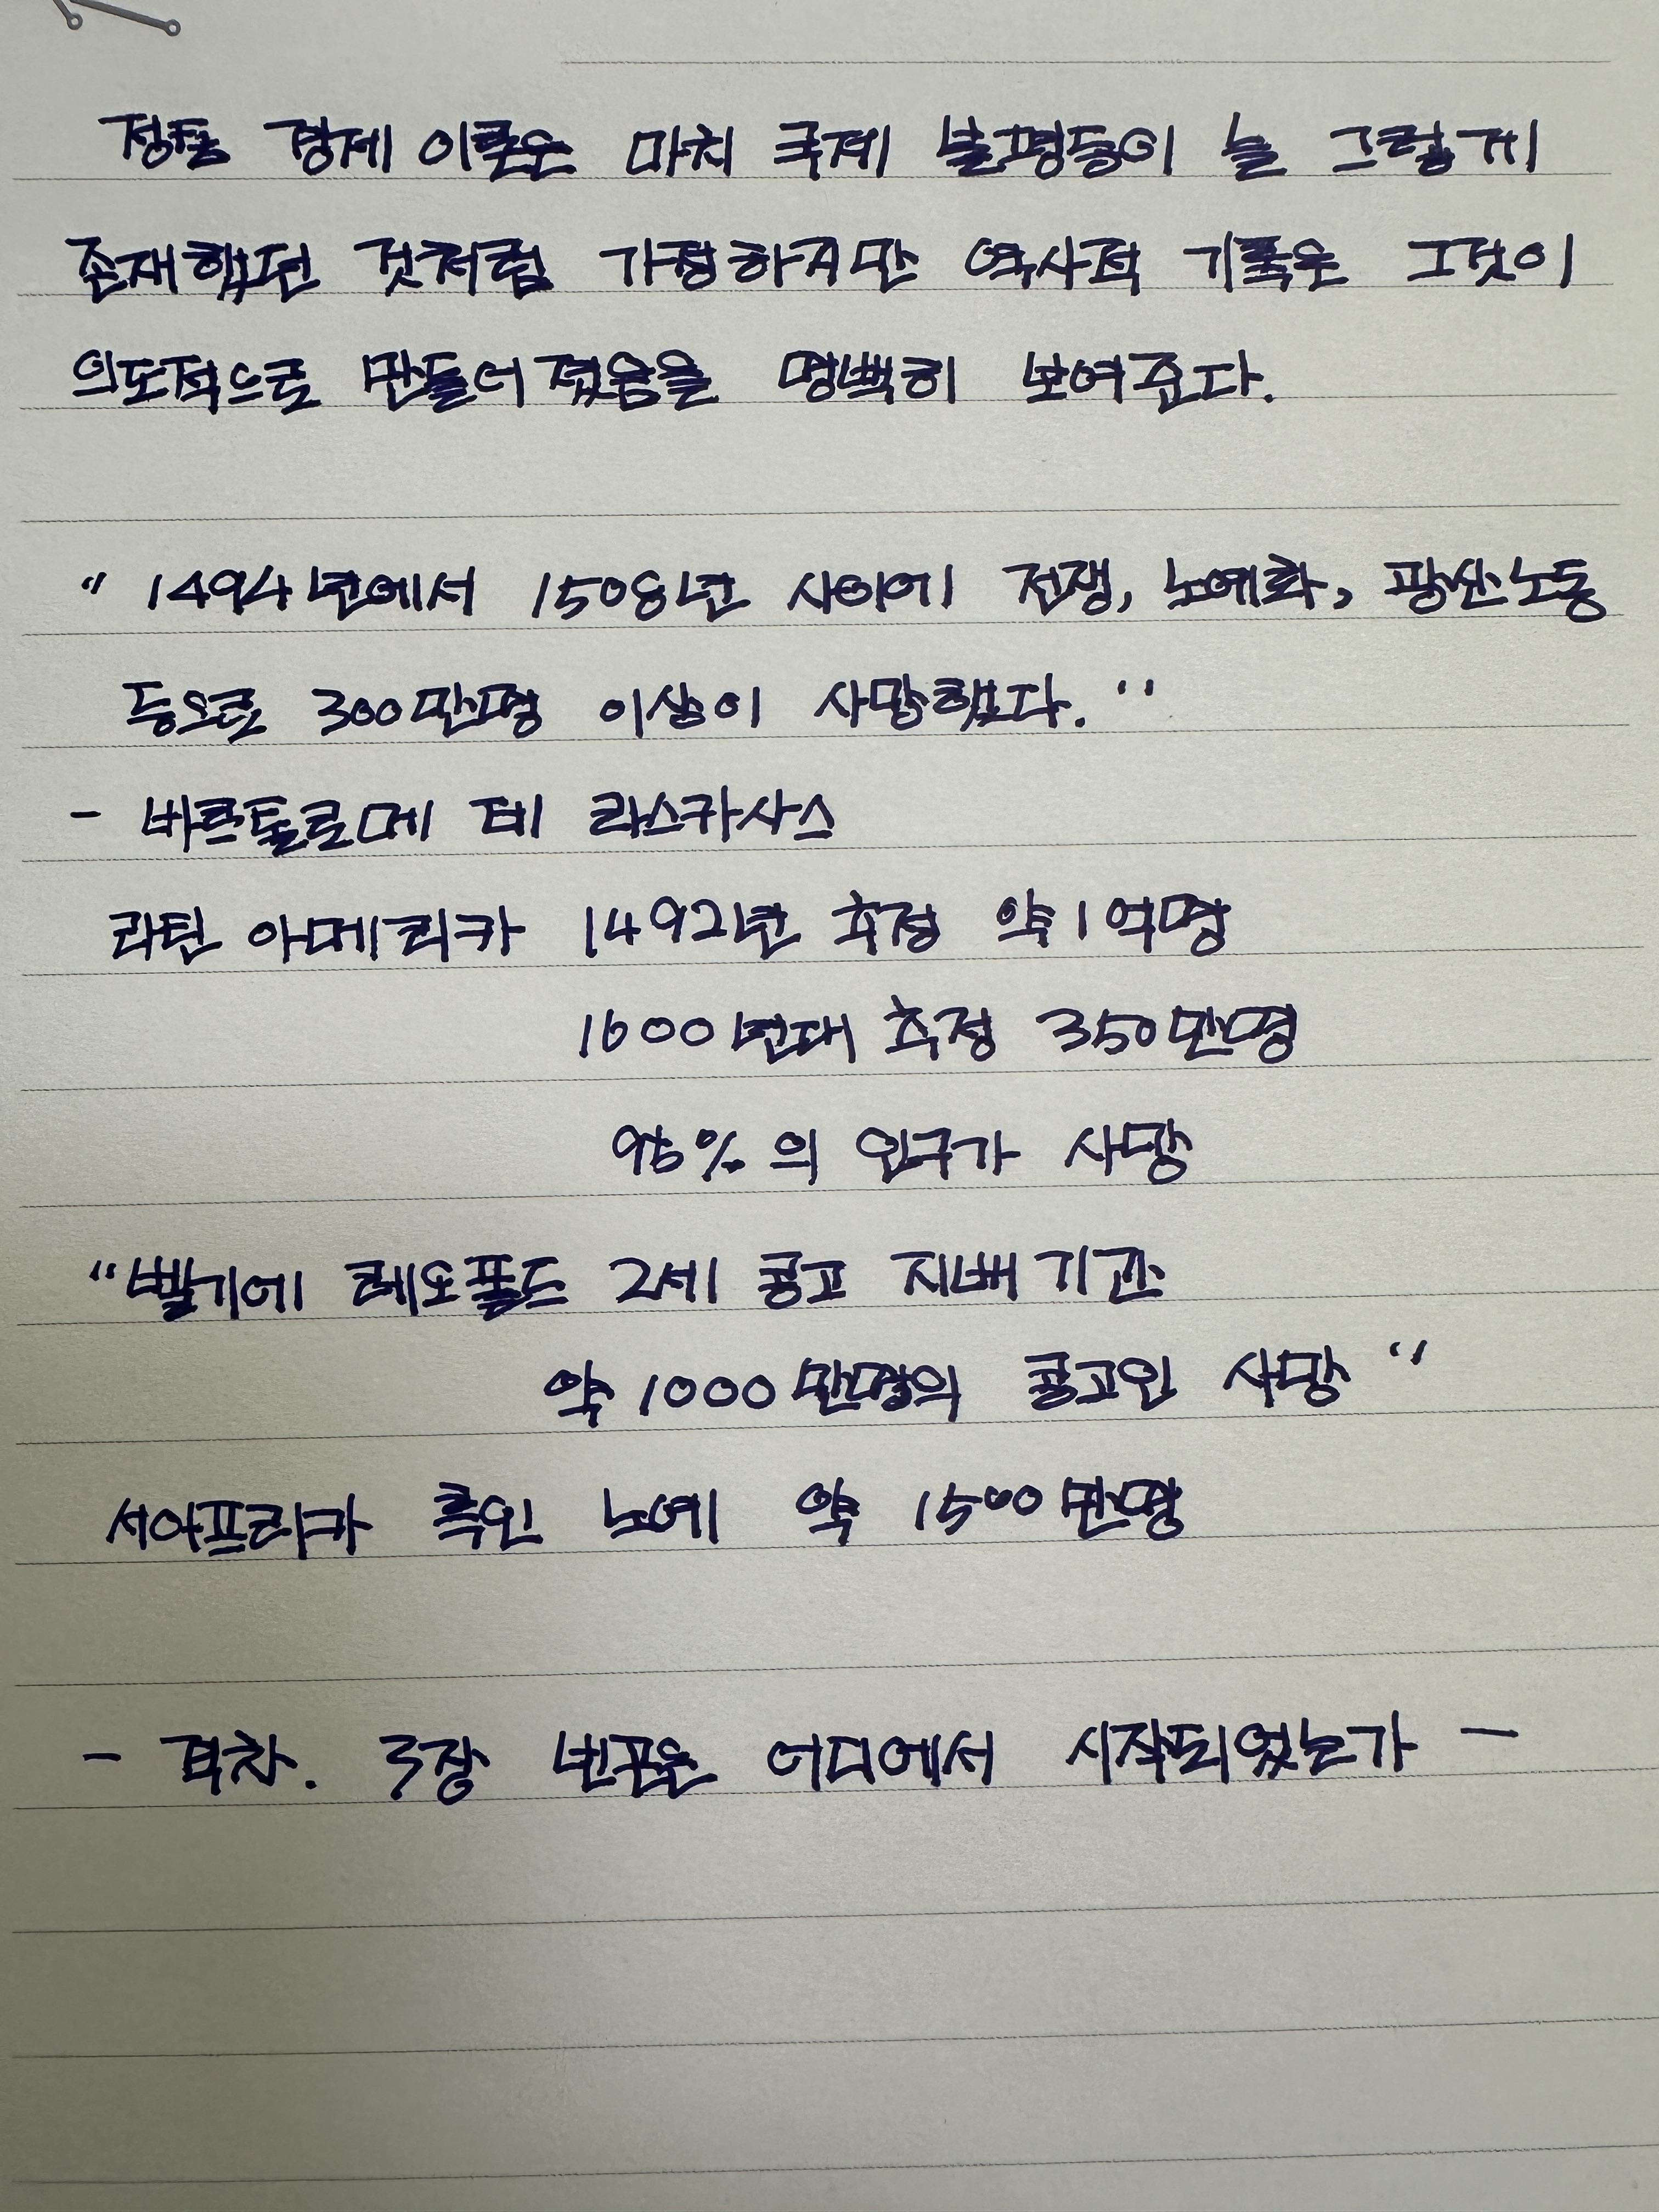 정통 경제 이론은 마치 국제 불평등이 늘 그렇게
존재했던 것처럼 가정하지만 역사적 기록은 그것이
의도적으로 만들어졌음을 명백히 보여준다.
“ 1494년에서 1508년 사이에 전쟁, 노예화, 광산노동
등으로 300만명 이상이 사망했다. ”
- 바르톨로메 데 라스카사스
라틴 아메리카 1492년 추정 약 1억명
1600년대 추정 350만명
95%의 인구가 사망
“벨기에 레오폴드 2세 콩고 지배기간
약 1000만명의 콩고인 사망 ”
서아프리카 흑인 노예 약 1500만명
- 격차. 3장 빈곤은 어디에서 시작되었는가 -